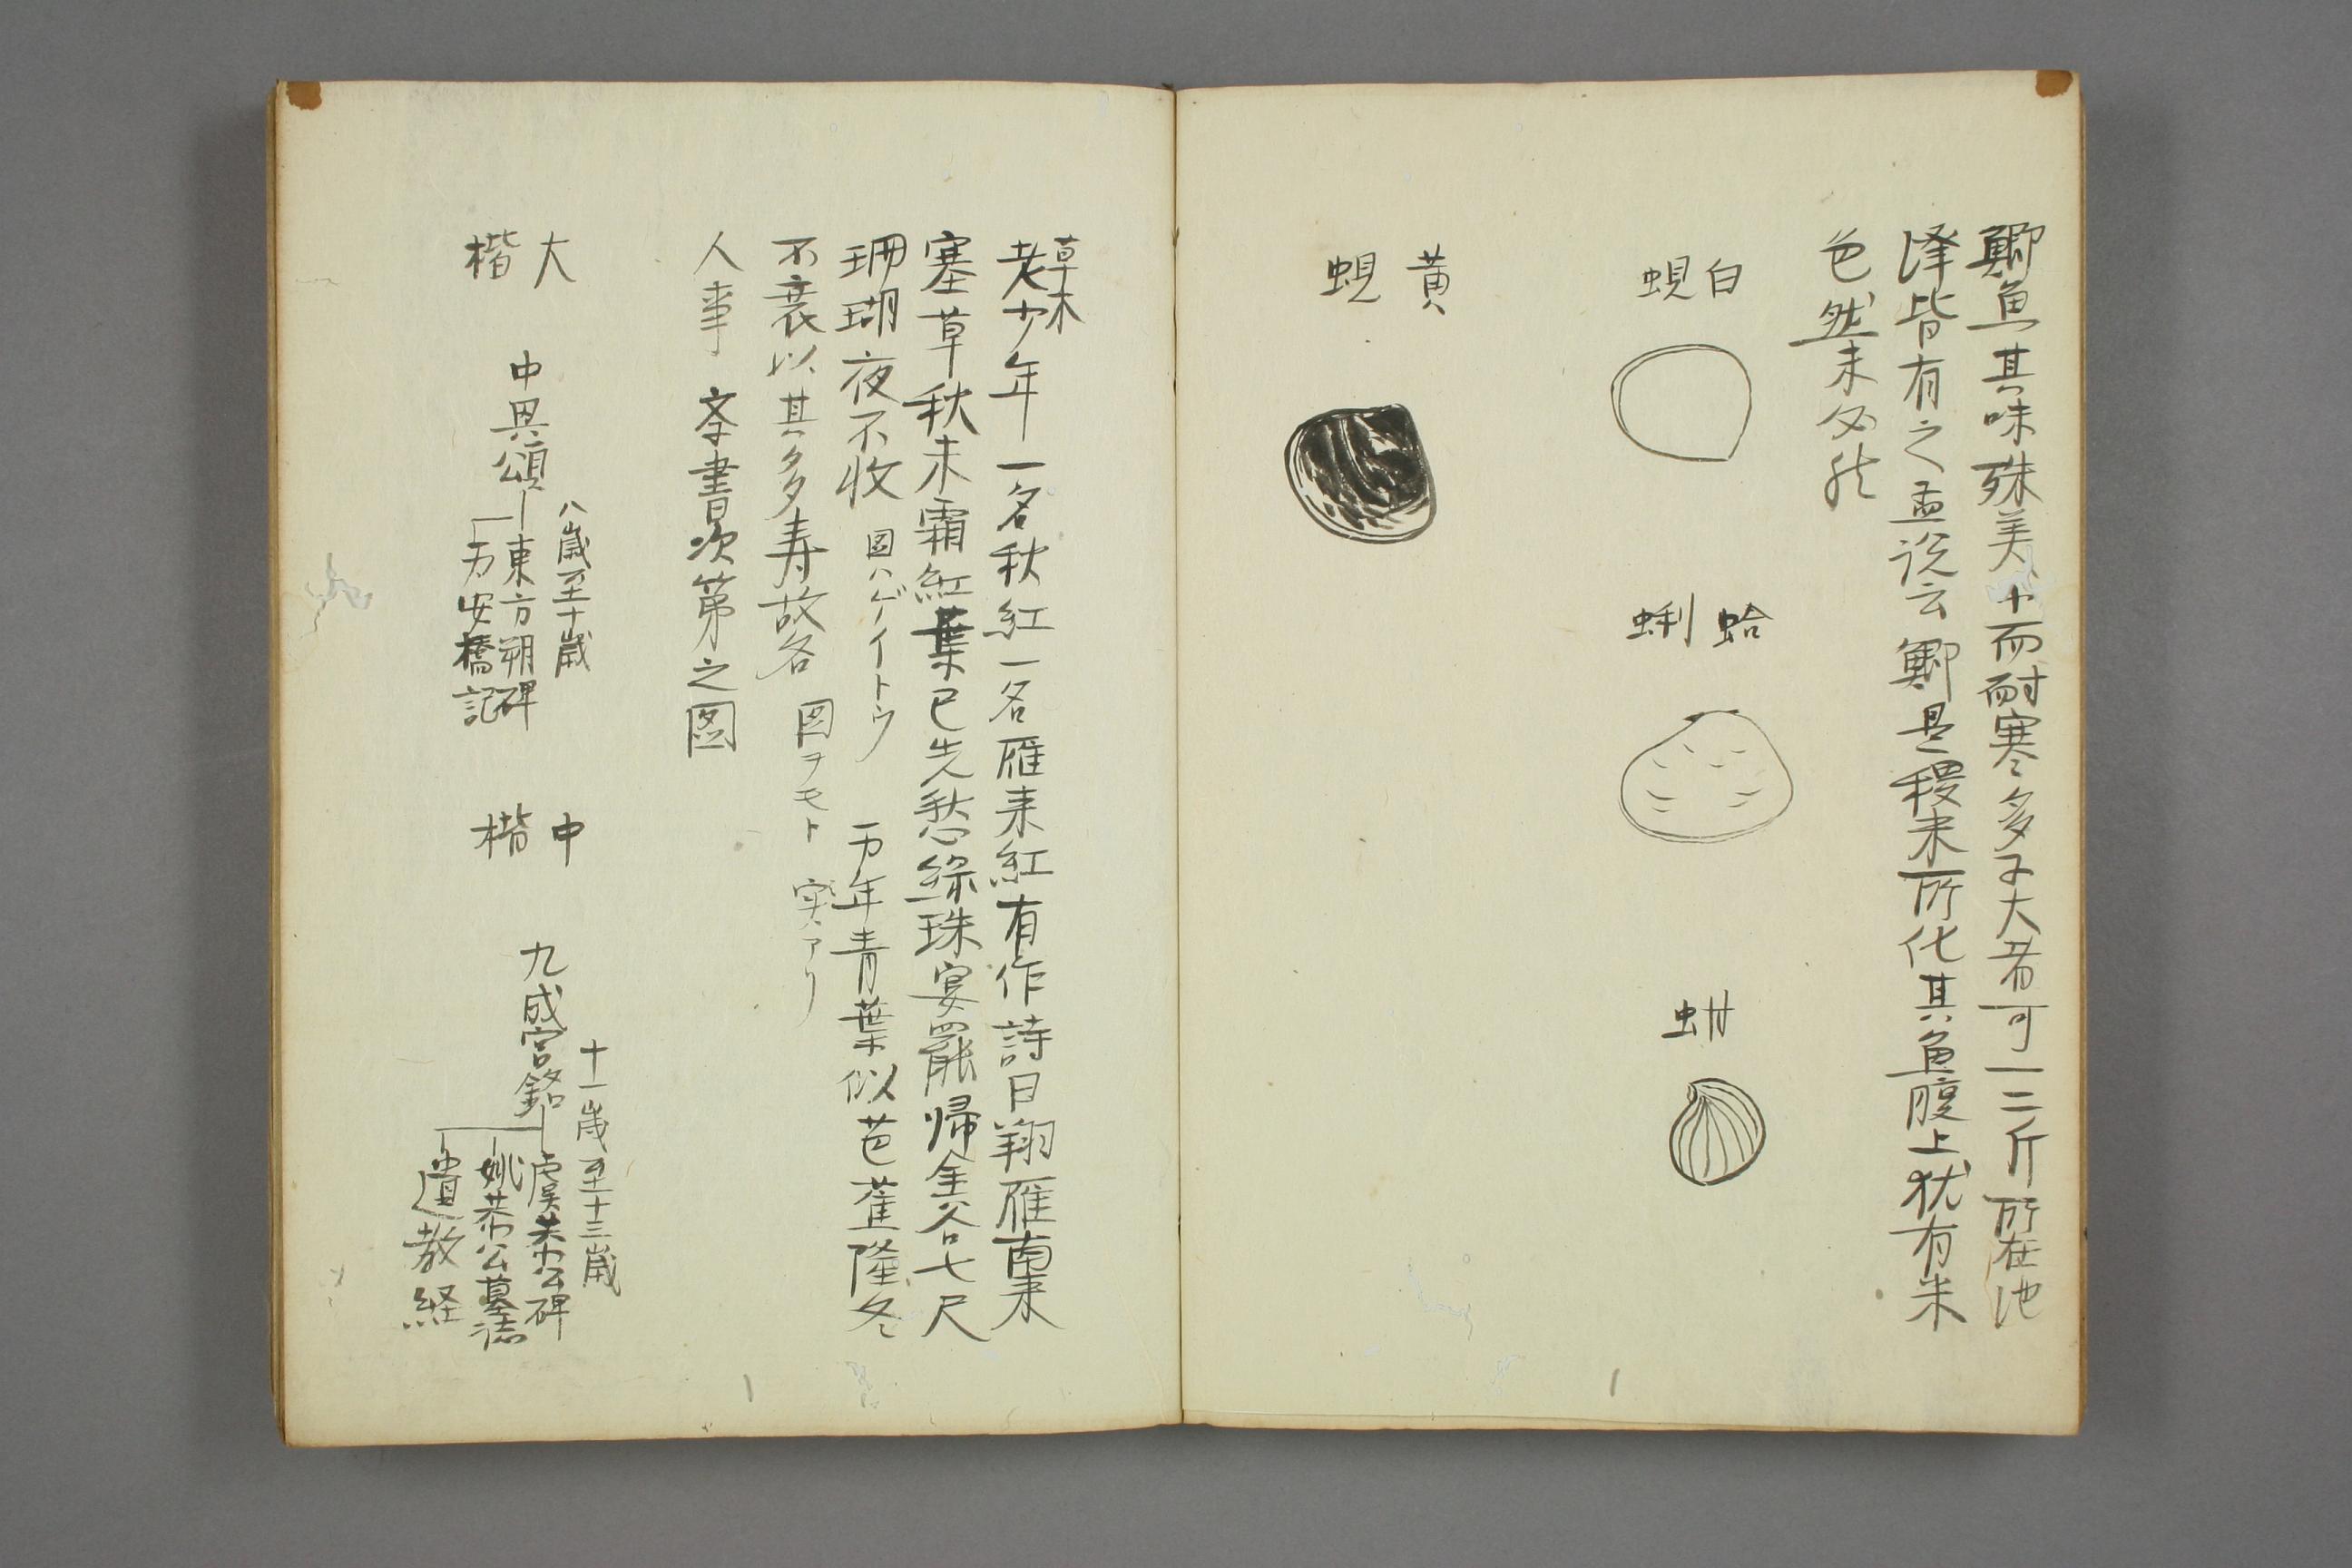 鯽魚其味殊美才而耐寒多子大者可一二斤所在池
澤皆有之孟説云鯽是稷米所化其魚腹上犹有米
色然未必然
白
蜆
蛤
蜊
蚶
黄
蜆
草木
老少年一名秋紅一名雁来紅有作詩曰翔雁南来
塞草秋未霜紅葉已先愁緑珠宴罷帰金谷七尺
珊瑚夜不收 国ハゲイトウ 万年青葉似芭蕉隆冬
不衰以其多寿故名 国ヲモト 実アリ
人事 李書次第之図
大
楷
八歳至十歳
中興頌
東方朔碑
万安橋記
中
楷
十一歳至十三歳
九成宮銘
虞恭公碑
姚恭公墓誌
遺教経